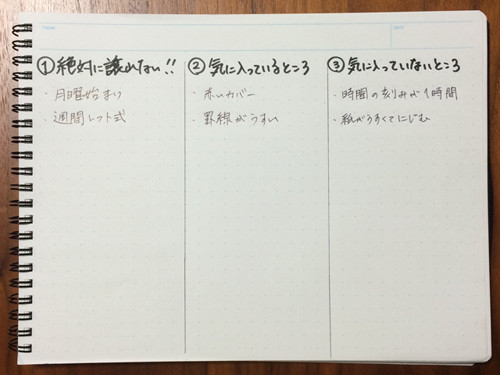 ① 絶対に譲れない!!
・月曜始まり
・週間レフト式
② 気に入っているところ
・赤いカバー
・罫線がうすい
③ 気に入っていないところ
・時間の刻みが1時間
・紙がうすくてにじむ
DATE